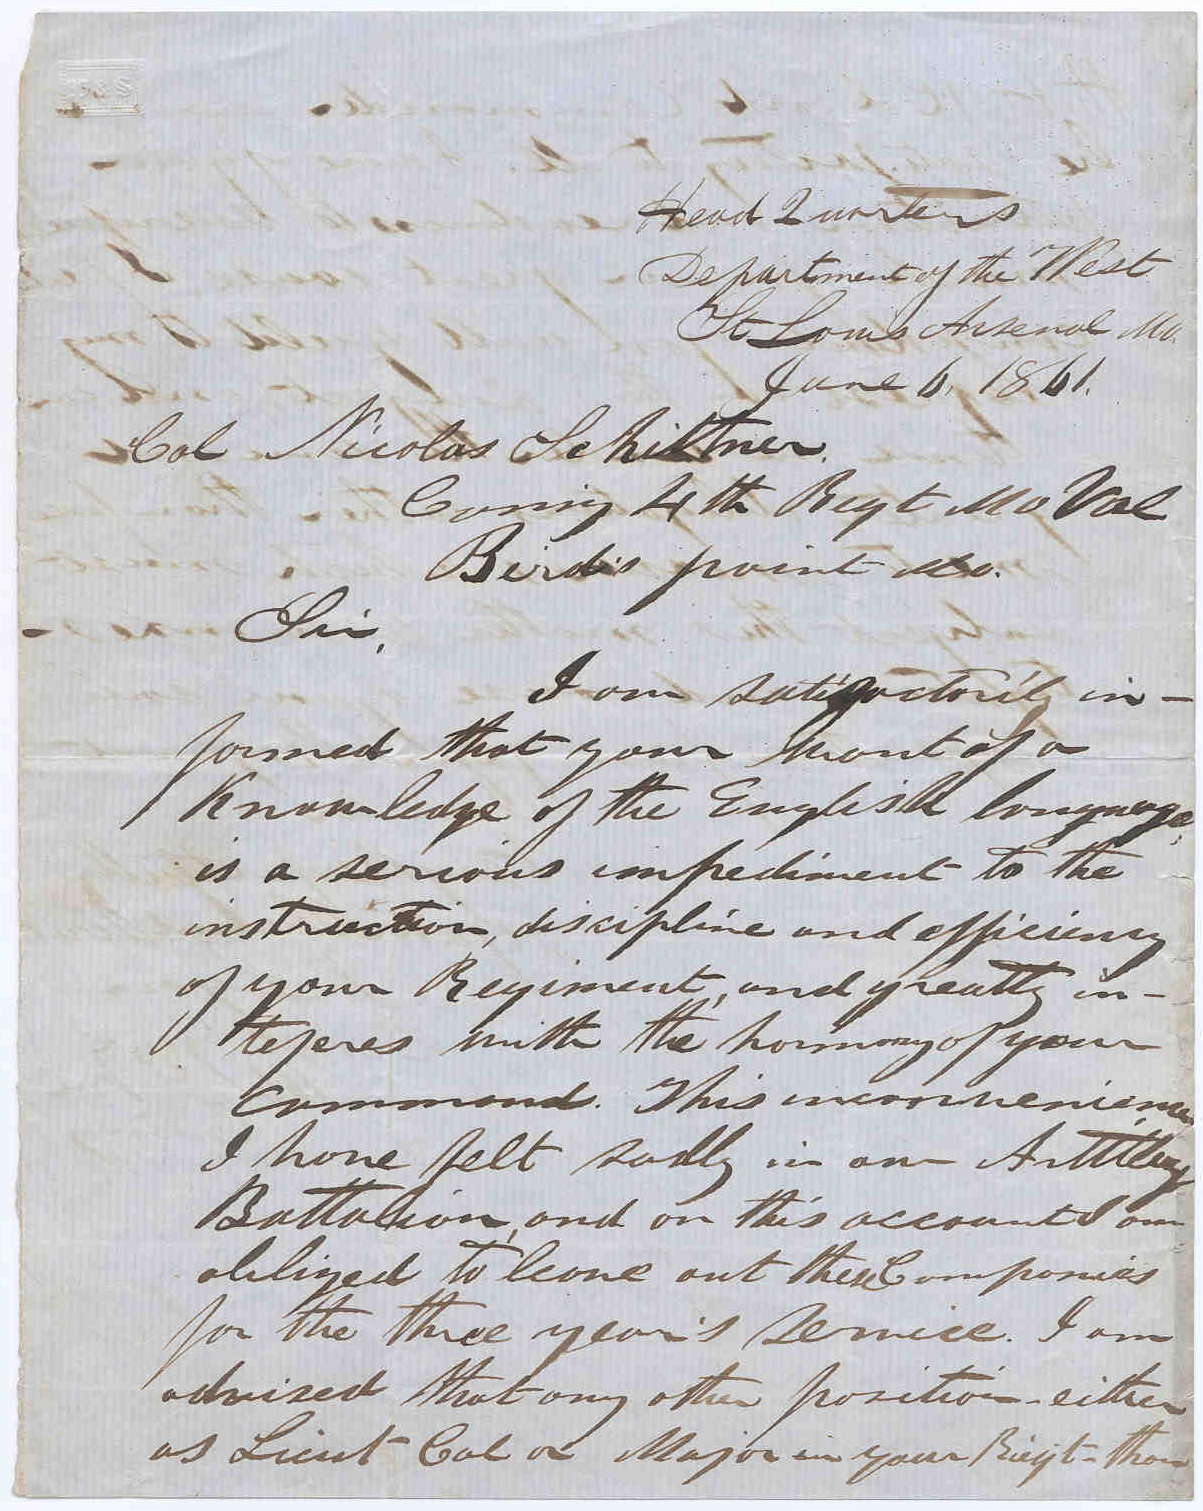 Head Quarters
Department of the West
St Louis Arsenal Mo.
June 6, 1861.
Col Nicolas Schittner.
Comg 4th Regt Mo Vol
Bird's point Mo.
Sir,
I am satisfactorily in-
formed that your want of a
Knowledge of the English language,
is a serious impediment to the
instruction, discipline and efficiency
of your Regiment, and greatly in-
teferes with the harmony of your
Command. This inconvenience
I have felt sadly in our Artillery
Battalion, and on this account I am
obliged to leave out these Companies
for the three year's service. I am
advised that any other position - either
as Lieut Col or Major in your Regt - than